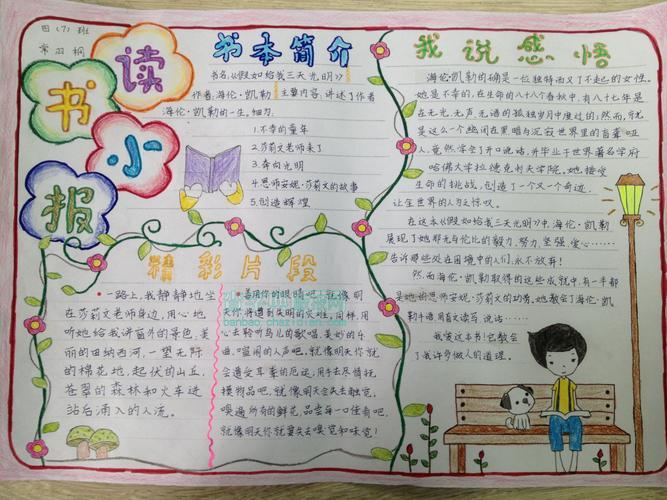 四(7)班
常羽桐
读书小报
书本简介
书名:《假如给我三天光明》
作者:海伦·凯勒 主要内容:讲述了作者
海伦·凯勒的一生。细列:
1.不幸的童年
2.莎莉文老师来了
3.奔向光明
4.恩师安妮·莎莉文的故事
5.创造辉煌
精彩片段
一路上,我静静地坐
在莎莉文老师身边,用心地
听她给我讲窗外的景色,美
丽的田纳西河,一望无际
的棉花地,起伏的山丘,
苍翠的森林和火车进
站后涌入的人流。
善用你的眼睛吧!就像明
天你将遭到失明的灾难。同样,用
心去聆听鸟儿的歌唱、美妙的乐
曲、喧闹的人声吧,就像明天你就
会遭受耳聋的厄运。用手去尽情抚
摸物品吧,就像明天会失去触觉。
嗅遍所有的鲜花,品尝每一口佳肴吧,
就像明天你就要失去嗅觉和味觉!
我说感悟
海伦·凯勒的确是一位独特而又了不起的女性。
她是不幸的,在生命的八十八个春秋中,有八十七年是
在无光、无声、无语的孤独岁月中度过的;然而,
是这么一个幽闭在黑暗与沉寂世界里的盲聋哑
人,竟然学会了开口说话,并毕业于世界著名学府
哈佛大学拉德克利夫学院。她接受
生命的挑战,创造了一个又一个奇迹,
让全世界的人为之惊叹。
在这本《假如给我三天光明》中,海伦·凯勒
展现了她那无与伦比的毅力,努力,坚强,爱心……
告诉那些处在困境中的人们,永不放弃!
然而海伦·凯勒取得的这些成就中,有一半都
是她的恩师安妮·莎莉文的功劳,她教会了海伦·凯
勒手语,用盲文读写,说话……
我爱这本书!它教会
了我许多做人的道理。
banbao.chazidian.com